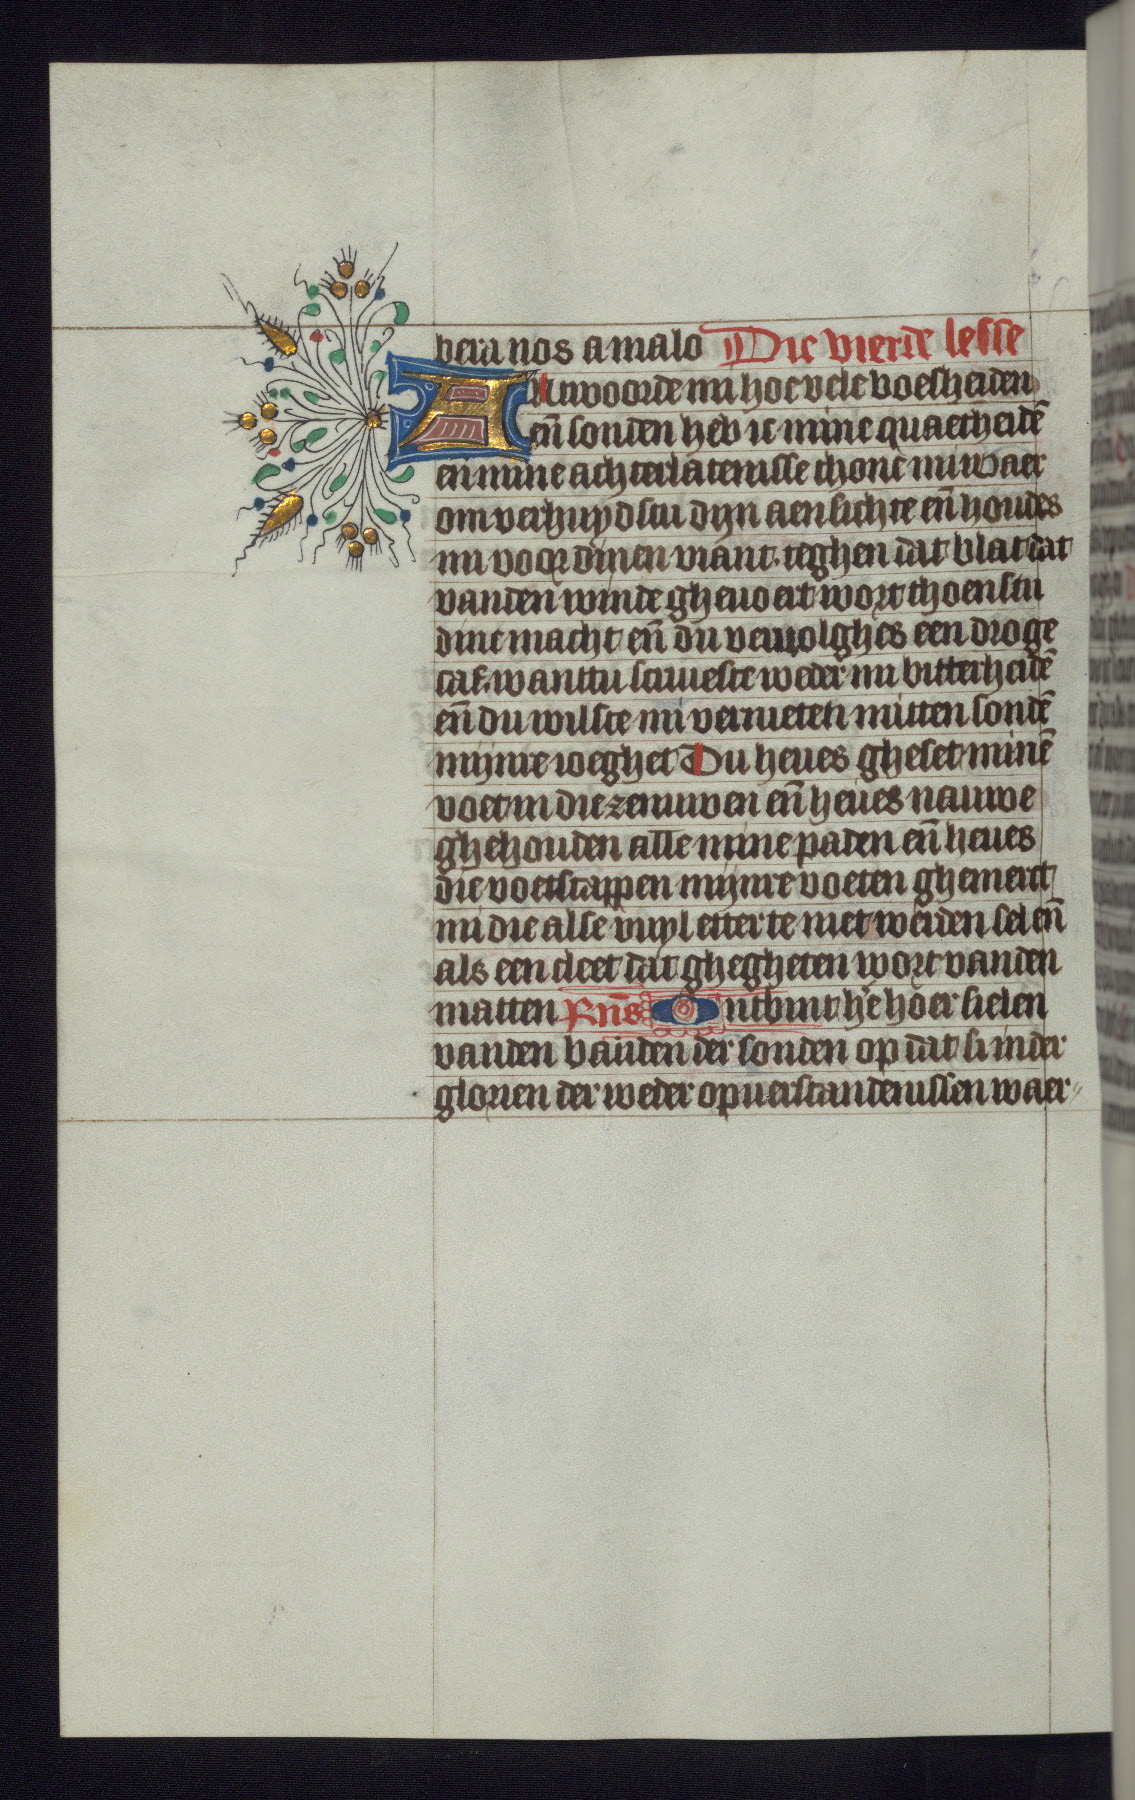 bera nos a malo Die vierde lesse
Antwoorde mi hoe vele boesheiden
eñ sonden heb ic mine quaetheidē
eñ mine achterlatenisse thone mi waer
om verhuydstu dijn aensichte eñ houdes
mi voor dinen viant teghen dat blat dat
vanden winde ghevoert wort thoenstu
dine macht eñ du vervolghes een droge
caf wanttu scrueste weder mi bitterheidē
eñ du wilste mi vernieten mitten sondē
mijnre ioeghet Du heves gheset minē
voet in die zenuwen eñ heves nauwe
ghehouden alle mine paden eñ heves
die voetstappen mijnre voeten ghemerct
mi die alse vuyl etter te niet werden sel eñ
als een cleet dat ghegheten wort vanden
matten Rñs Ontbint he hoer sielen
vanden banden der sonden op dat si inder
glorien der weder opverstandenissen waer